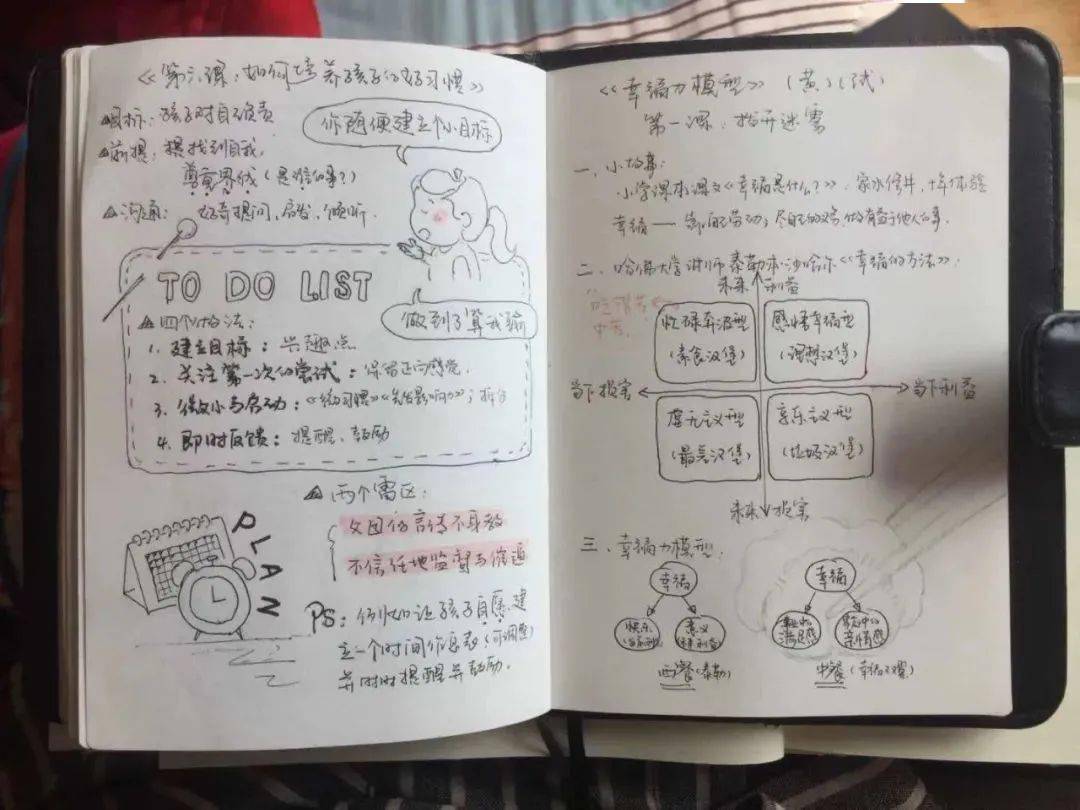 《第六课：如何培养孩子的好习惯》
目标：孩子对自己负责
前提：提找到自我,
尊重界线（是谁的事？）
沟通：好奇提问，启发，倾听.
你随便建立个小目标
TO DO LIST
做到了算我输
四个办法：
1. 建立目标：兴趣点
2. 关注第一次的尝试：保留正向感觉.
3. 微小与启动：《微习惯》《影响力》；拆分
4. 即时反馈：提醒、鼓励
两个雷区：
父母的言传不身教
不信任地监督与催逼
PLAN
PS：例如让孩子自愿建
立一个时间作息表（可调整）
并时时提醒并鼓励.
《幸福力模型》（黄）（试）
第一课：拨开迷雾
一、小故事：
小学课本课文《幸福是什么？》
幸福——靠自己劳动；尽自己的义务，做有益于他人的事.
二、哈佛大学讲师泰勒本·沙哈尔《幸福的方法》：
未来利益
忙碌奔波型
（素食汉堡）
感悟幸福型
（理想汉堡）
当下损害
当下利益
虚无主义型
（最差汉堡）
享乐主义型
（垃圾汉堡）
未来损害
三、幸福力模型.
幸福
快乐
意义
西餐（泰勒）
幸福
满足感
亲情感
中餐